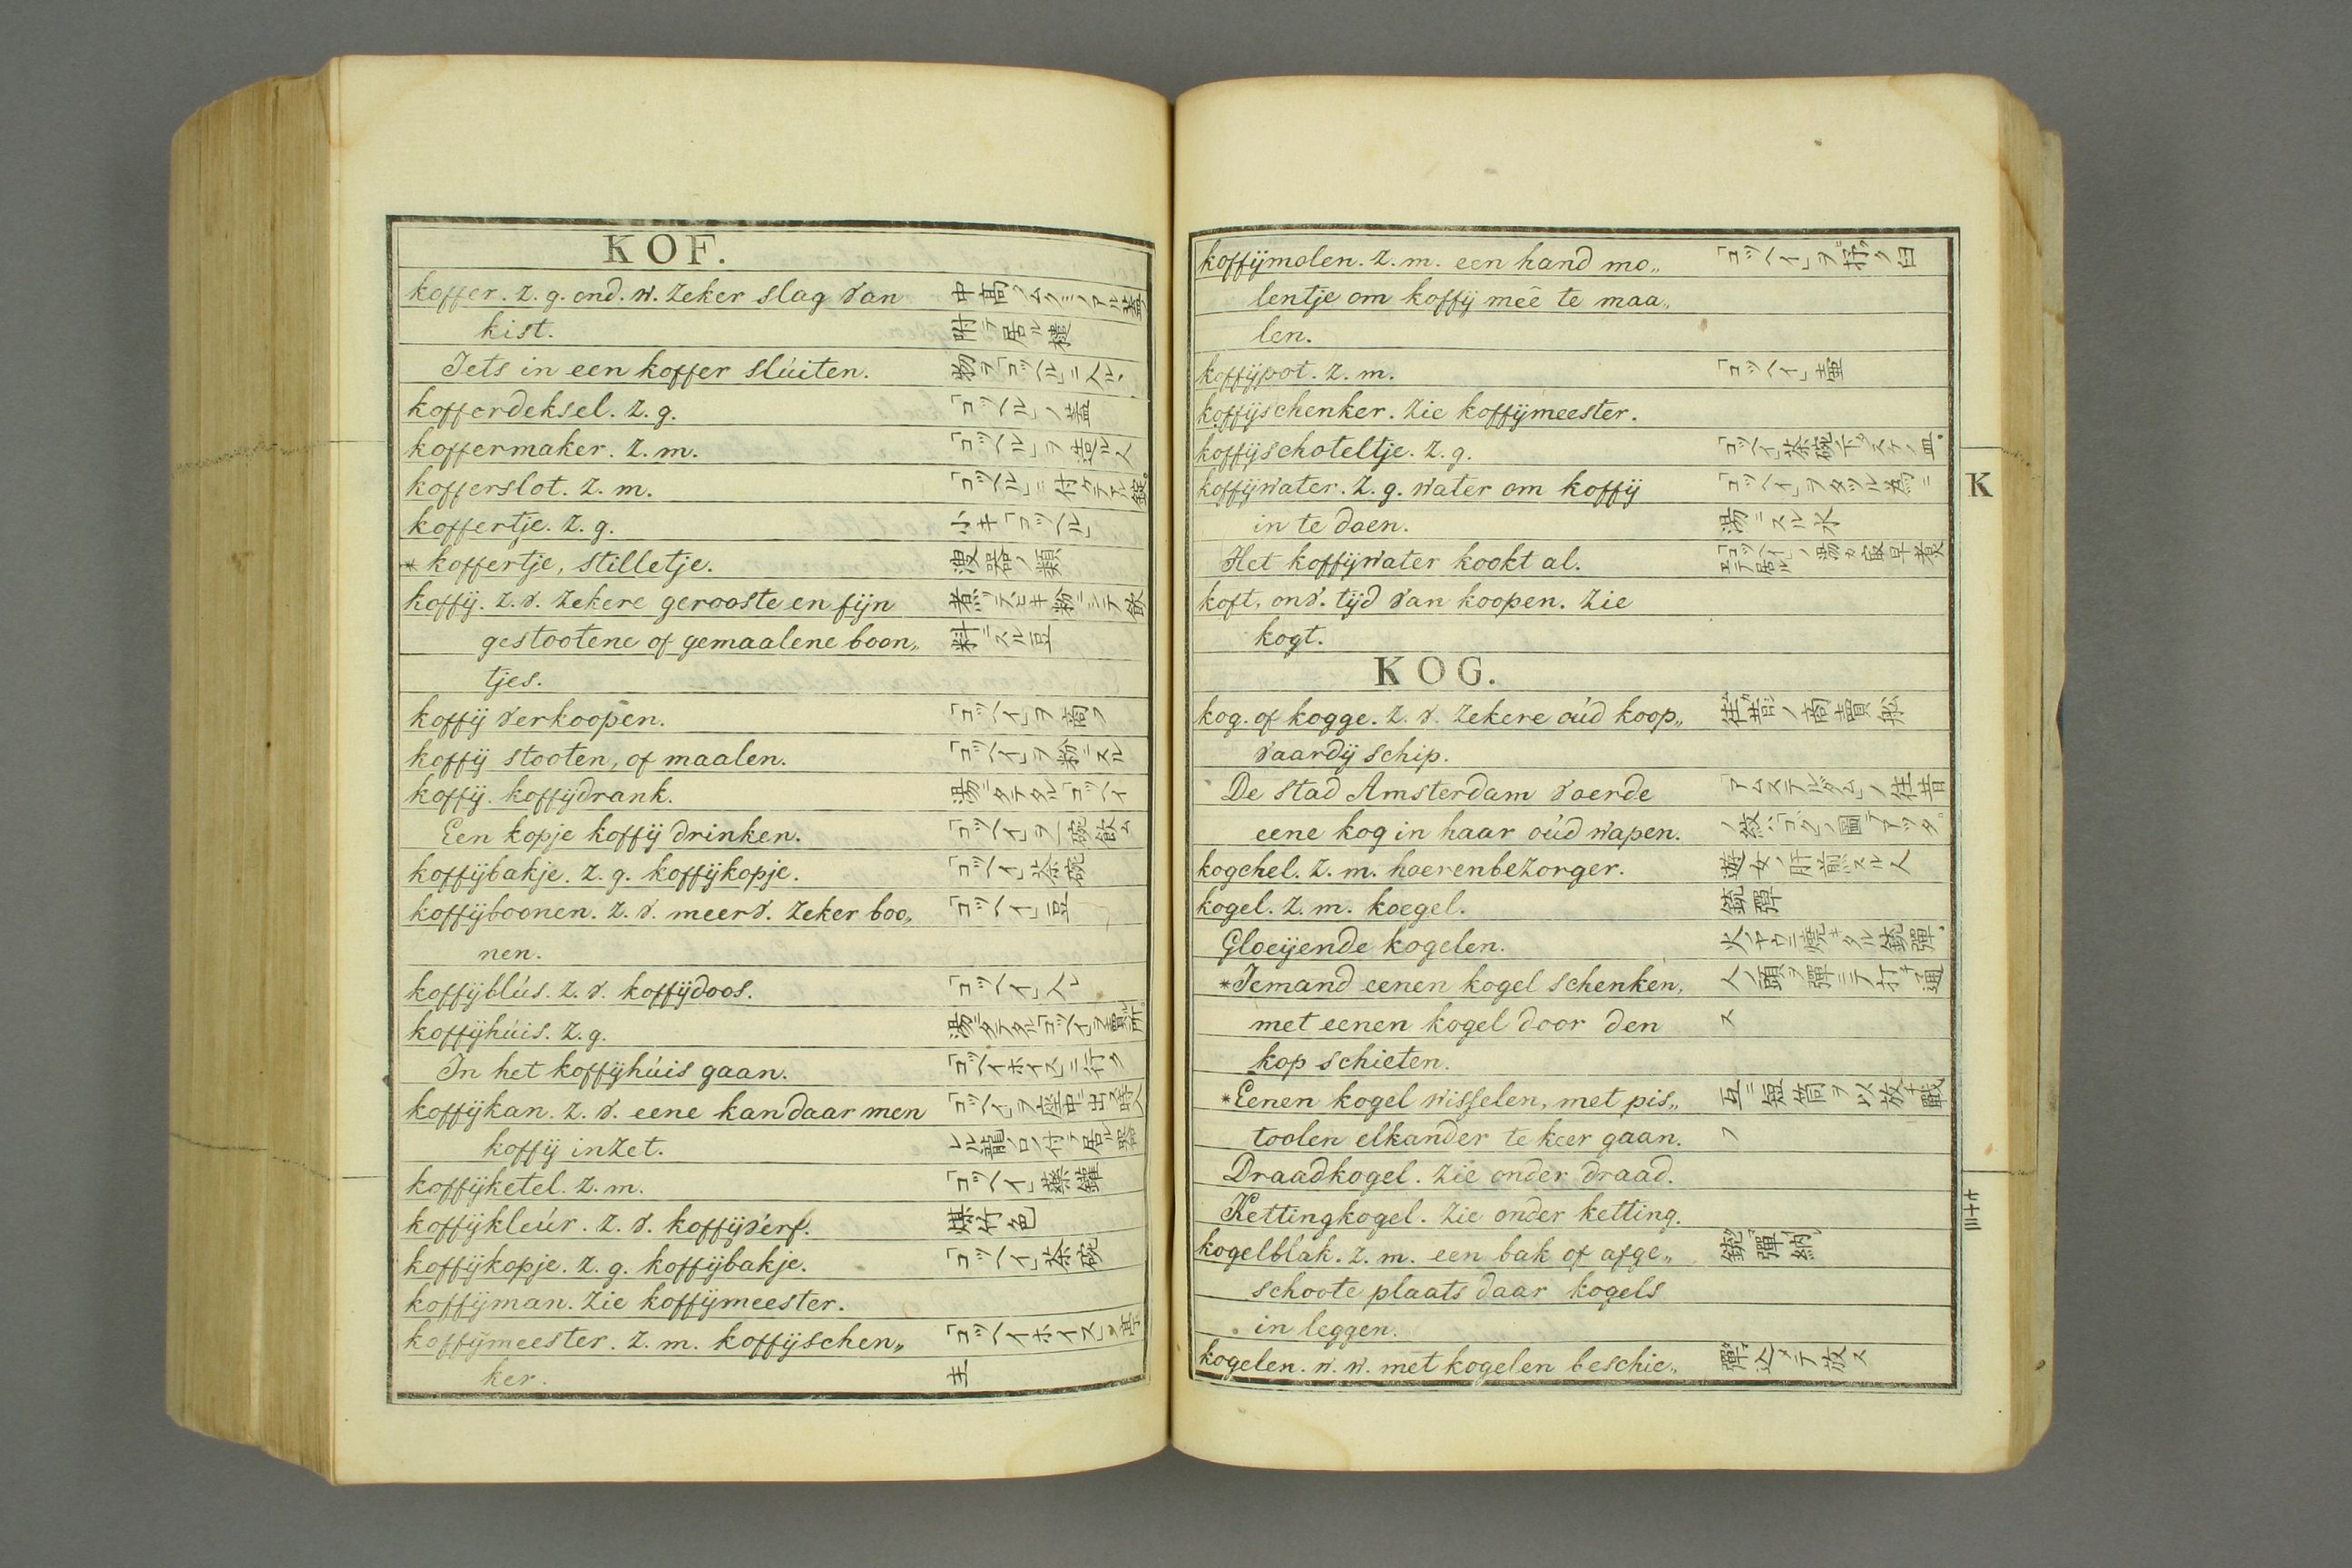 KOF.
koffer. z. g. ond. w. zeker slag van 中高ノムクミノアル蓋
kist. 附テ居ル櫃
Iets in een koffer slúiten. 物ヲ「コッヘル」ニ入ル
kofferdeksel. z. g. 「コッヘル」ノ蓋
koffermaker. z. m. 「コッヘル」ヲ造ル人
kofferslot. z. m. 「コッヘル」ニ付タアル錠
koffertje. z. g. 小キ「コッヘル」
* koffertje, stilletje. 溲器ノ類
koffij. z. v. zekere gerooste en fijn
gestootene of gemaalene boon„ 料ニスル豆
tjes.
koffij verkoopen. 「コッヘイ」ヲ商フ
koffij stooten, of maalen. 「コッヘイ」ヲ粉ニスル
koffij. koffijdrank. 湯ニタテタル「コッヘイ
Een kopje koffij drinken. 「コッヘイ」ヲ一碗飲ム
koffijbakje. z. g. koffijkopje. 「コッヘイ」茶碗
koffijboonen. z. v. meerv. zeker boo„ 「コッヘイ」豆
nen.
koffijblús. z. v. koffijdoos. 「コッヘイ」入レ
koffijhúis. z. g. 湯ニタテタル「コッヘイ」ヲ賣ル所
In het koffijhúis gaan. 「コッヘイホイス」ニ行ク
koffijkan. z. v. eene kan daar men
koffij in zet.
koffijketel. z. m. 「コッヘイ」藥鑵
koffijkleúr. z. v. koffijverf. 煤竹色
koffijkopje. z. g. koffijbakje. 「コッヘイ」茶碗
koffijman. zie koffijmeester.
koffijmeester. z. m. koffijschen„ 「コッヘイホイス」ノ亭
ker. 主
koffijmolen. z. m. een hand mo„ 「コッヘイ」ヲ
lentje om koffij meê te maa„
len.
koffijpot. z. m. 「コッヘイ」壷
koffijschenker. zie koffijmeester.
koffijschoteltje. z. g. 「コッヘイ」茶碗
koffijwater. z. g. water om koffij 「コッヘイ」ヲタツル為ニ
in te doen. 湯ニスル水
Het koffijwater kookt al.
koft, onv. tijd van koopen. zie
kogt.
KOG.
kog. of kogge. z. v. zekere oúd koop„ 往昔ノ商賣舩
vaardij schip.
De stad Amsterdam voerde 「アムステルダム」ノ往昔
eene kog in haar oúd wapen. ノ紋ハ「コグ」ノ圖
kogchel. z. m. hoerenbezorger. 遊女ノ肝煎スル人
kogel. z. m. koegel. 銃彈
Gloeijende kogelen. 火ノヤウニ焼キタル銃彈
*Iemand eenen kogel schenken, 人ノ頭ヲ彈ニテ打通
met eenen kogel door den ス
kop schieten.
*Eenen kogel wisselen, met pis„ 互ニ短筒ヲ以放戰
toolen elkander te keer gaan. フ
Draadkogel. zie onder draad.
Kettingkogel. zie onder ketting.
kogelblak. z. m. een bak of afge„ 銃彈納
schoote plaats daar kogels
in leggen.
kogelen. w. w. met kogelen beschie„ 彈込メテ放ス
K